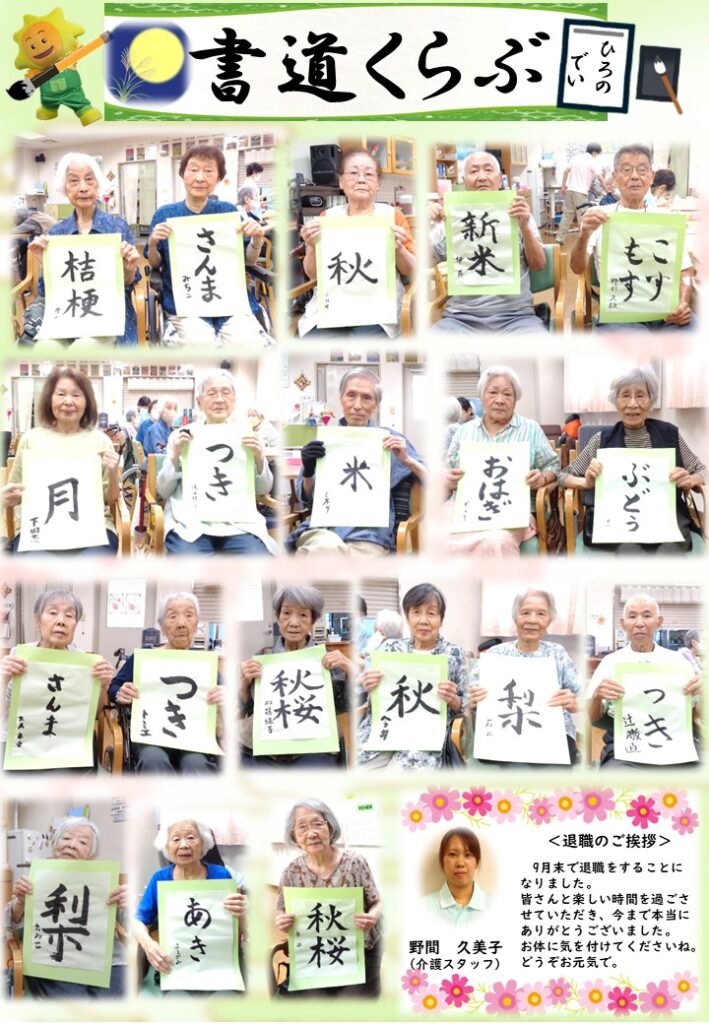 書道くらぶ
ひろの
でい
桔梗
さんま
みちこ
秋
新米
こり
もす
月
つき
米
おはぎ
ぶどう
さんま
つき
トミエ
秋桜
秋
梨
つき
辻巌直
梨
あき
秋桜
<退職のご挨拶>
9月末で退職をすることに
なりました。
皆さんと楽しい時間を過ごさ
せていただき、今まで本当に
ありがとうございました。
お体に気を付けてくださいね。
どうぞお元気で。
野間 久美子
(介護スタッフ)